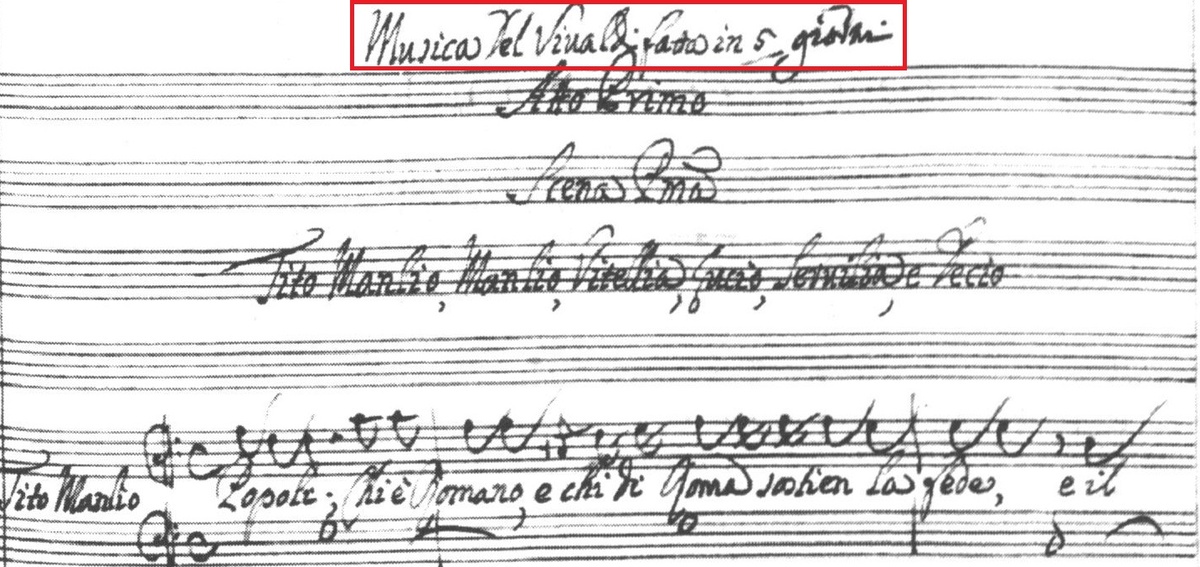 Musica Del Viualdi fatta in 5 giorni
Atto Primo
Scena Pma
Tito Manlio, Manlio, Vitellia, Lucio, Seruilia, e Decio
Tito Manlio Popoli: Chi è Romano, e chi di Roma sostien la fede, e il